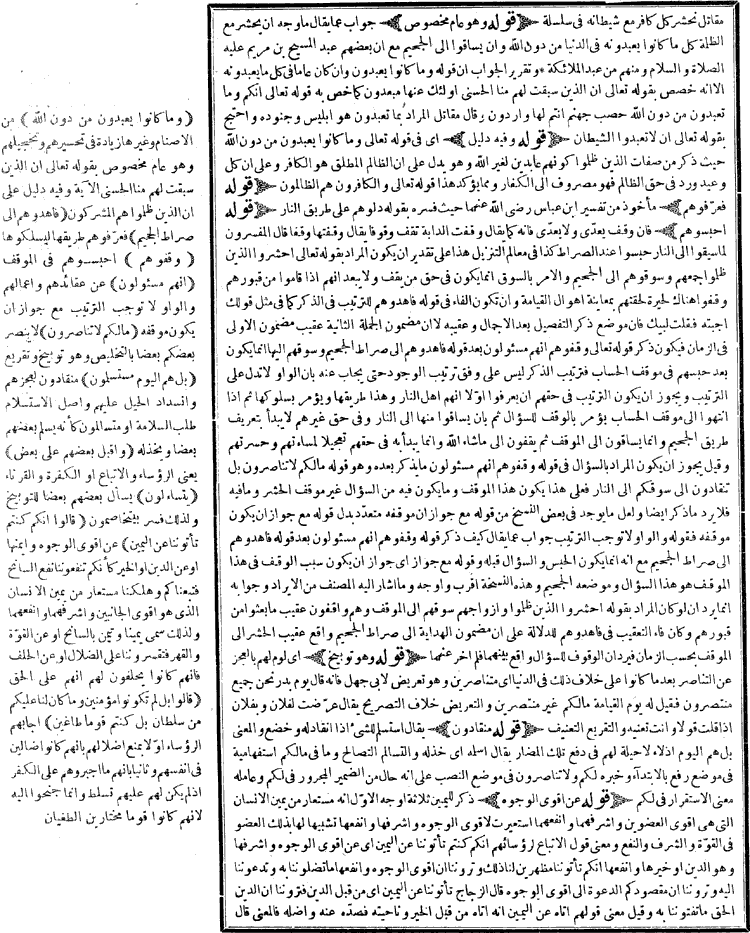 مقاتل نحشر كل كافر مع شيطانه فى سلسلة ﴿ قوله وهو عام مخصوص ﴾ جواب عما يقال ما وجه ان يحشر مع
الظلمة كل ما كانوا يعبدونه فى الدنيا من دون الله وان يساقوا الى الجحيم مع ان بعضهم عبد المسيح بن مريم عليه
الصلاة والسلام ومنهم من عبد الملائكة * وتقرير الجواب ان قوله وما كانوا يعبدون وان كان عاما فى كل ما يعبدونه
الا انه خصص بقوله تعالى ان الذين سبقت لهم منا الحسنى اولئك عنها مبعدون كما خص به قوله تعالى انكم وما
تعبدون من دون الله حصب جهنم انتم لها واردون وقال مقاتل المراد بما تعبدون هو ابليس وجنوده واحتج
بقوله تعالى ان لا تعبدوا الشيطان ﴿ قوله وفيه دليل ﴾ اى فى قوله تعالى وما كانوا يعبدون من دون الله
حيث ذكر من صفات الذين ظلموا كونهم عابدين لغير الله وهو يدل على ان الظالم المطلق هو الكافر وعلى ان كل
وعيد ورد فى حق الظالم فهو مصروف الى الكفار ومما يؤكد هذا قوله تعالى والكافرون هم الظالمون ﴿ قوله
فعرّفوهم ﴾ مأخوذ من تفسير ابن عباس رضى الله عنهما حيث فسره بقوله دلوهم على طريق النار ﴿ قوله
احبسوهم ﴾ فان وقف يتعدّى ولا يتعدّى فانه كما يقال وقفت الدابة تقف وقوفا يقال وقفتها وقفا قال المفسرون
لما سيقوا الى النار حبسوا عند الصراط كذا فى معالم التنزيل هذا على تقدير ان يكون المراد بقوله تعالى احشروا الذين
ظلموا جمعهم وسوقهم الى الجحيم والامر بالسوق انما يكون فى حق من يقف ولا يبعد انهم اذا قاموا من قبورهم
وقفوا هناك لحيرة لحقتهم بمعاينة اهوال القيامة وان تكون الفاء فى قوله فاهدوهم للترتيب فى الذكر كما فى مثل قولك
اجبته فقلت لبيك فان موضع ذكر التفصيل بعد الاجمال وعقيبه لا ان مضمون الجملة الثانية عقيب مضمون الاولى
فى الزمان فيكون ذكر قوله تعالى وقفوهم انهم مسئولون بعد قوله فاهدوهم الى صراط الجحيم وسوقهم اليها انما يكون
بعد حبسهم فى موقف الحساب فترتيب الذكر ليس على وفق ترتيب الوجود حتى يجاب عنه بان الواو لا تدل على
الترتيب ويجوز ان يكون الترتيب فى حقهم ان يعرفوا اوّلا انهم اهل النار وهذا طريقها ويؤمر بسلوكها ثم اذا
انتهوا الى موقف الحساب يؤمر بالوقف للسؤال ثم بان يساقوا منها الى النار وفى حق غيرهم لا يبدأ بتعريف
طريق الجحيم وانما يساقون الى الموقف ثم يقفون الى ما شاء الله وانما يبدأ به فى حقهم تعجيلا لمساءتهم وحسرتهم
وقيل يجوز ان يكون المراد بالسؤال فى قوله وقفوهم انهم مسئولون ما يذكر بعده وهو قوله مالكم لا تناصرون بل
تنقادون الى سوقكم الى النار فعلى هذا يكون هذا الموقف وما يكون فيه من السؤال غير موقف الحشر وما فيه
فلا يرد ما ذكر ايضا ولعل ما يوجد فى بعض النسخ من قوله مع جواز ان موقفه متعدّد بدل قوله مع جواز ان يكون
موقفه فقوله والواو لا توجب الترتيب جواب عما يقال كيف ذكر قوله وقفوهم انهم مسئولون بعد قوله فاهدوهم
الى صراط الجحيم مع انه انما يكون الحبس والسؤال قبله وقوله مع جواز اى جواز ان يكون سبب الوقف فى هذا
الموقف هو هذا السؤال وموضعه الجحيم وهذه النسخة اقرب واوجه وما اشار اليه المصنف من الايراد وجوابه
انما يرد ان لو كان المراد بقوله احشروا الذين ظلموا وازواجهم سوقهم الى الموقف وهم واقفون عقيب ما بعثوا من
قبورهم وكان فاء التعقيب فى فاهدوهم للدلالة على ان مضمون الهداية الى صراط الجحيم واقع عقيب الحشر الى
الموقف بحسب الزمان فيرد ان الوقوف للسؤال واقع بينهما فلم اخر عنهما ﴿ قوله وهو توبيخ ﴾ اى لوم لهم بالعجز
عن التناصر بعد ما كانوا على خلاف ذلك فى الدنيا اى متناصرين وهو تعريض لابى جهل فانه قال يوم بدر نحن جميع
منتصرون فقيل له يوم القيامة مالكم غير منتصرين والتعريض خلاف التصريح يقال عرّضت لفلان وبفلان
اذا قلت قولا وانت تعنيه والتقريع التعنيف ﴿ قوله منقادون ﴾ يقال استسلم للشئ اذا انقاد له وخضع والمعنى
بل هم اليوم اذلاء لا حيلة لهم فى دفع تلك المضار يقال اسلمه اى خذله والتسالم التصالح وما فى مالكم استفهامية
فى موضع رفع بالابتداء وخبره لكم ولا تناصرون فى موضع النصب على انه حال من الضمير المجرور فى لكم وعامله
معنى الاستقرار فى لكم ﴿ قوله عن اقوى الوجوه ﴾ ذكر لليمين ثلاثة اوجه الاوّل انه مستعار من يمين الانسان
التى هى اقوى العضوين واشرفهما وانفعهما استعيرت لاقوى الوجوه واشرفها وانفعها تشبيها لها بذلك العضو
فى القوّة والشرف والنفع ومعنى قول الاتباع لرؤسائهم انكم كنتم تأتوننا عن اليمين اى عن اقوى الوجوه واشرفها
وهو الدين او خيرها وانفعها انكم تأتوننا مظهرين لنا ذلك وتروننا ان اقوى الوجوه وانفعها ما تضلوننا به وتدعوننا
اليه وتروننا ان مقصودكم الدعوة الى اقوى الوجوه قال الزجاج تأتوننا عن اليمين اى من قبل الدين فتروننا ان الدين
الحق ما تفتوننا به وقيل معنى قولهم اتاه عن اليمين انه اتاه من قبل الخير وناحيته فصدّه عنه واضله فالمعنى قال
(وما كانوا يعبدون من دون الله) من
الاصنام وغيرها زيادة فى تحسيرهم وتخجيلهم
وهو عام مخصوص بقوله تعالى ان الذين
سبقت لهم منا الحسنى الآية وفيه دليل على
ان الذين ظلموا هم المشركون (فاهدوهم الى
صراط الجحيم) فعرّفوهم طريقها ليسلكوها
(وقفوهم) احبسوهم فى الموقف
(انهم مسئولون) عن عقائدهم واعمالهم
والواو لا توجب الترتيب مع جواز ان
يكون موقفه (مالكم لا تناصرون) لا ينصر
بعضكم بعضا بالتخليص وهو توبيخ وتقريع
(بل هم اليوم مستسلمون) منقادون لعجزهم
وانسداد الحيل عليهم واصل الاستسلام
طلب السلامة او متسالمون كأنه يسلم بعضهم
بعضا ويخذله (واقبل بعضهم على بعض)
يعنى الرؤساء والاتباع او الكفرة والقرناء
(يتساءلون) يسأل بعضهم بعضا للتوبيخ
ولذلك فسر بيتخاصمون (قالوا انكم كنتم
تأتوننا عن اليمين) عن اقوى الوجوه وايمنها
او عن الدين او الخير كأنكم تنفعوننا نفع السانح
فتبعناكم وهلكنا مستعار من يمين الانسان
الذى هو اقوى الجانبين واشرفهما وانفعهما
ولذلك سمى يمينا وتيمن بالسانح او عن القوّة
والقهر فتقسروننا على الضلال او عن الحلف
فانهم كانوا يحلفون لهم انهم على الحق
(قالوا بل لم تكونوا مؤمنين وما كان لنا عليكم
من سلطان بل كنتم قوما طاغين) اجابهم
الرؤساء اوّلا بمنع اضلالهم بانهم كانوا ضالين
فى انفسهم وثانيا بانهم ما اجبروهم على الكفر
اذ لم يكن لهم عليهم تسلط وانما جنحوا اليه
لانهم كانوا قوما مختارين الطغيان